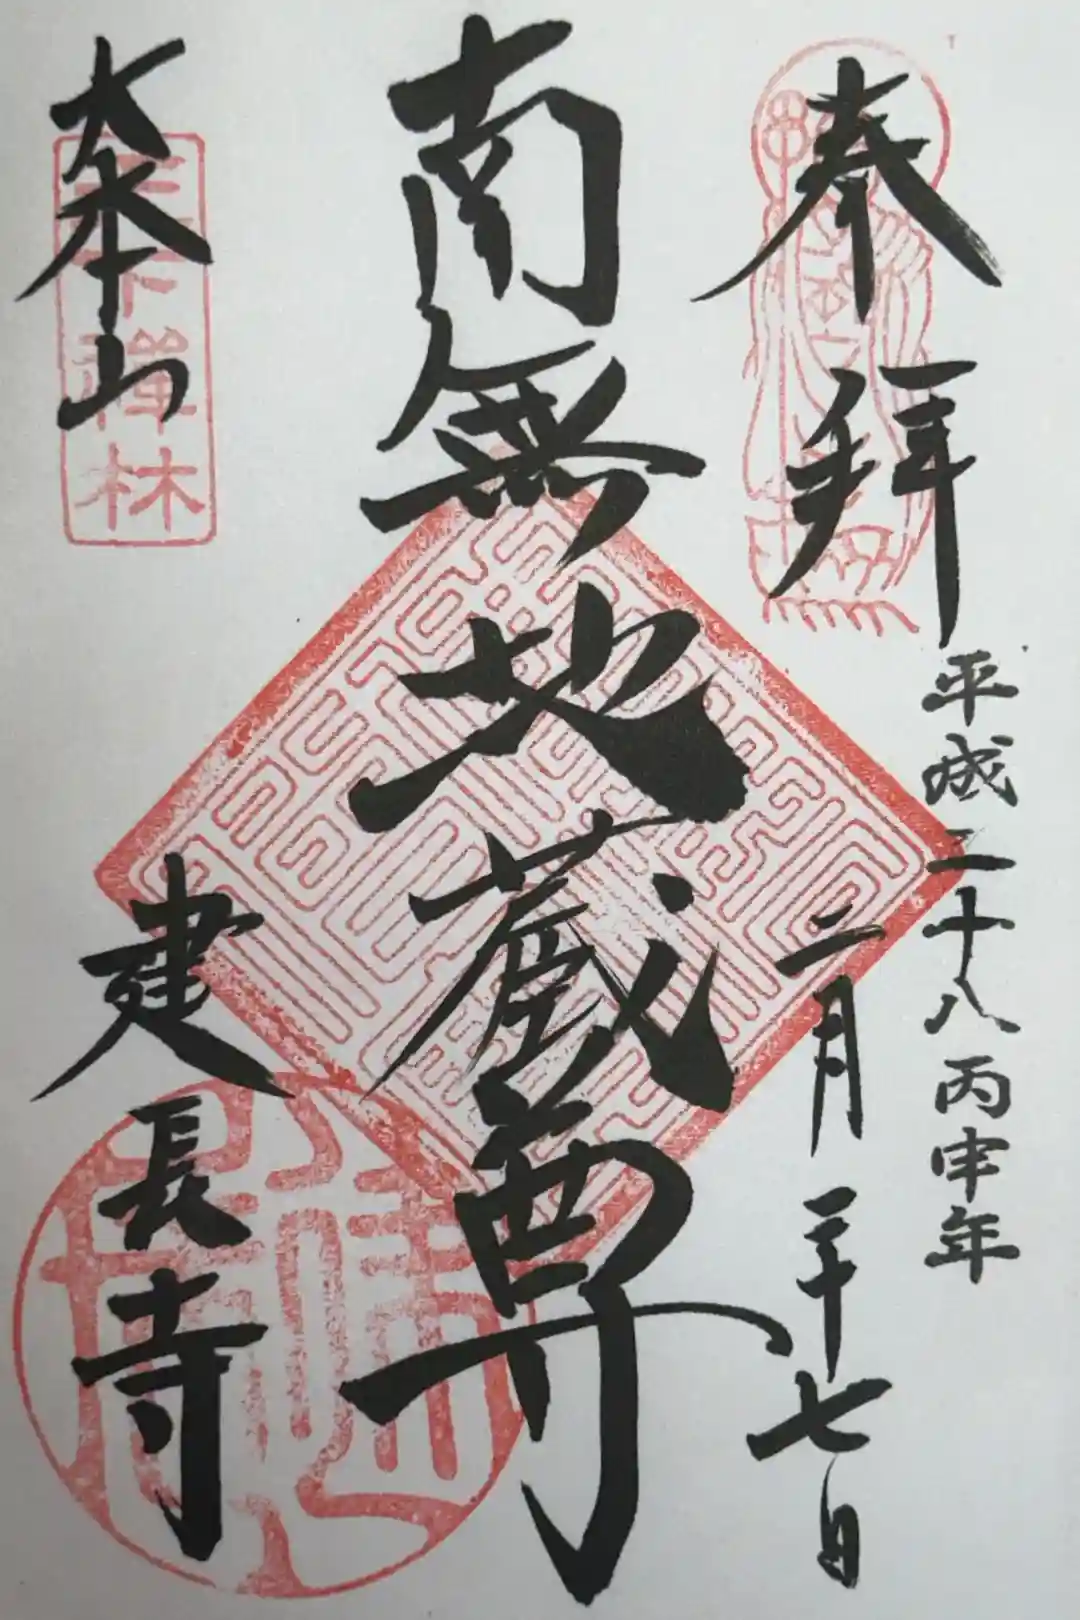 奉拝
平成二十八丙申年
二月二十七日
南無地蔵尊
大本山
建長寺
天下禅林